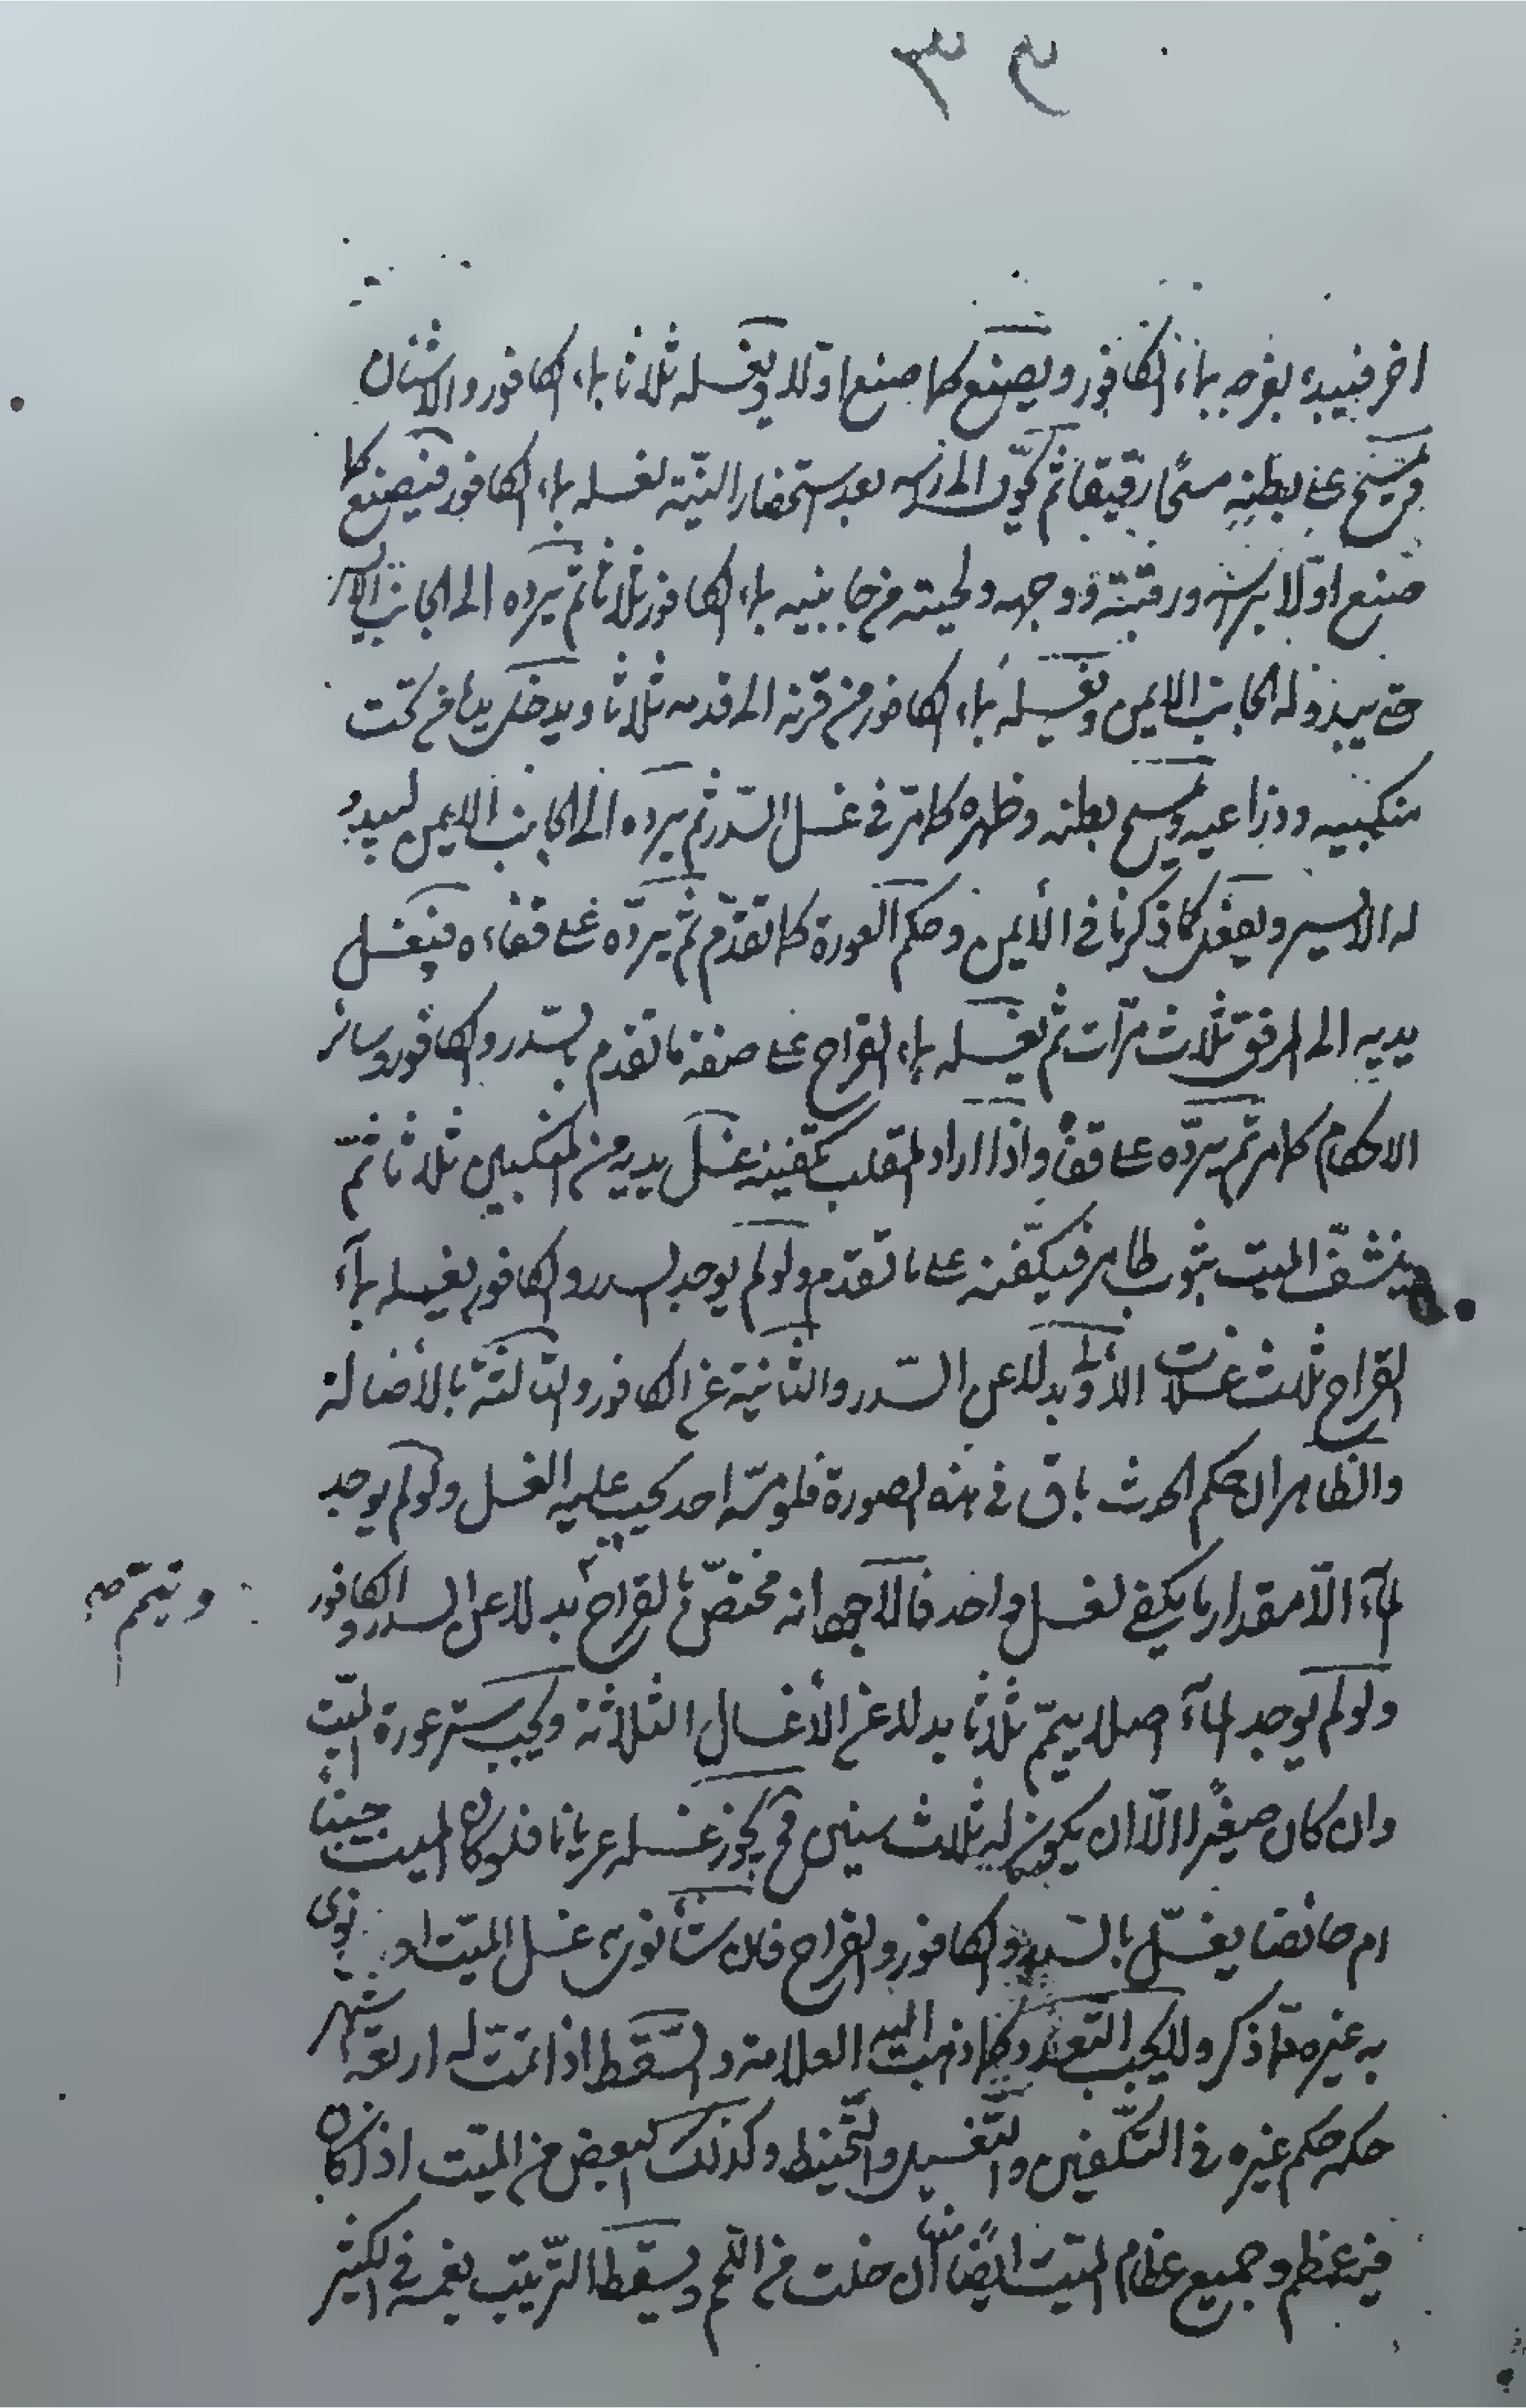 اخر فيبدء بفرجه بماء الكافور ويصنع كما صنع اولا ويغسله ثلاثا بماء الكافور والاشنان
ويمسح على بطنه مسحًا رقيقا ثم يحوّل الى رأسه بعد استحضار النيّة لغسله بماء الكافور فيصنع كما
صنع اوّلا برأسه ورقبته ووجهه ولحيته من جانبيه بماء الكافور ثلاثا ثم يردّه الى الجانب الايسر
حتى يبدو له الجانب الايمن ويغسله بماء الكافور من قرنه الى قدمه ثلاثا ويدخل يده من تحت
منكبيه وذراعيه ويمسح بطنه وظهره كما مرّ في غسل السّدر ثم يردّه الى الجانب الايمن ليبدو
له الايسر ويفعل كما ذكرنا في الأيمن وحكم العورة كما تقدّم ثم يردّه على قفاءه فيغسل
يديه الى المرفق ثلاث مرّات ثم يغسله بماء القراح على صفة ما تقدم بالسّدر والكافور وسائر
الاحكام كما مر ثم يردّه على قفاه واذا اراد المقلب تكفينه غسل يديه من المنكبين ثلاثا ثمّ
ينشّف الميت بثوب طاهر فيكفّنه على ما تقدم ولو لم يوجد السدر والكافور يغسله بمآء
القراح ثلث غسلات الأولى بدلا عن السّدر والثانية عن الكافور والثالثة بالأصالة
والظاهر ان حكم الحدث باق في هذه الصورة فلو مسّه احد يجب عليه الغسل ولو لم يوجد
المآء الّا مقدار ما يكفى لغسل واحد فالاوجه انه مختصّ بالقراح بدلا عن السدر والكافور
وتيمّم صح
ولو لم يوجد المآء اصلا ييمّم ثلاثا بدلا عن الأغسال الثلاثة ويجب ستر عورة الميّت
وان كان صغيرًا الّا ان يكون له ثلاث سنين فح يجوز غسله عريانا فلو كان الميت جنبًا
ام حائضا يغسّل بالسّدر والكافور والقراح فان شآء نوى غسل الميّت او نوى
به غيره ممّا ذكر ولا يجب التعدد كما ذهبت اليه العلامة والسّقط اذا تمّت له اربعة اشهر
حكمه حكم غيره في التّكفين والتّغسيل والتّحنيط وكذلك البعض من الميّت اذا كان
فيه عظم وجميع عظام الميّت ايضًا ان خلت من اللّحم ويسقط التّرتيب بغمسه في الكثير